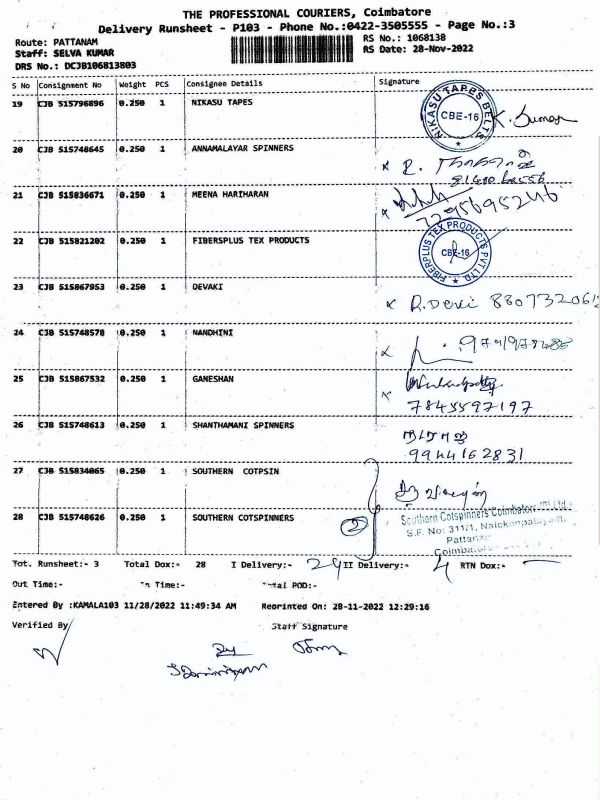 THE PROFESSIONAL COURIERS, Coimbatore
Delivery Runsheet - P103 - Phone No.:0422-3505555 - Page No.:3
Route: PATTANAM RS No.: 1068138
Staff: SELVA KUMAR RS Date: 28-Nov-2022
DRS No.: DCJB106813803
S No Consignment No Weight PCS Consignee Details Signature
19 CJB 515796896 0.250 1 NIKASU TAPES
NIKASU TAPES BELTS CBE-16 K. Kumar
20 CJB 515748645 0.250 1 ANNAMALAYAR SPINNERS
21 CJB 515836671 0.250 1 MEENA HARIHARAN
7295695246
22 CJB 515821202 0.250 1 FIBERSPLUS TEX PRODUCTS
FIBERPLUS TEX PRODUCTS PVT LTD CBE-16
23 CJB 515867953 0.250 1 DEVAKI
R. Devi
24 CJB 515748578 0.250 1 NANDHINI
25 CJB 515867532 0.250 1 GANESHAN
7845597197
26 CJB 515748613 0.250 1 SHANTHAMANI SPINNERS
9944162831
27 CJB 515834065 0.250 1 SOUTHERN COTPSIN
28 CJB 515748626 0.250 1 SOUTHERN COTSPINNERS
2
Southern Cotspinners Coimbatore
S.F. No: 311/1,
Tot. Runsheet:- 3 Total Dox:- 28 I Delivery:- II Delivery:- 4 RTN Dox:- —
Out Time:- In Time:- Total POD:-
Entered By :KAMALA103 11/28/2022 11:49:34 AM Reprinted On: 28-11-2022 12:29:16
Verified By Staff Signature